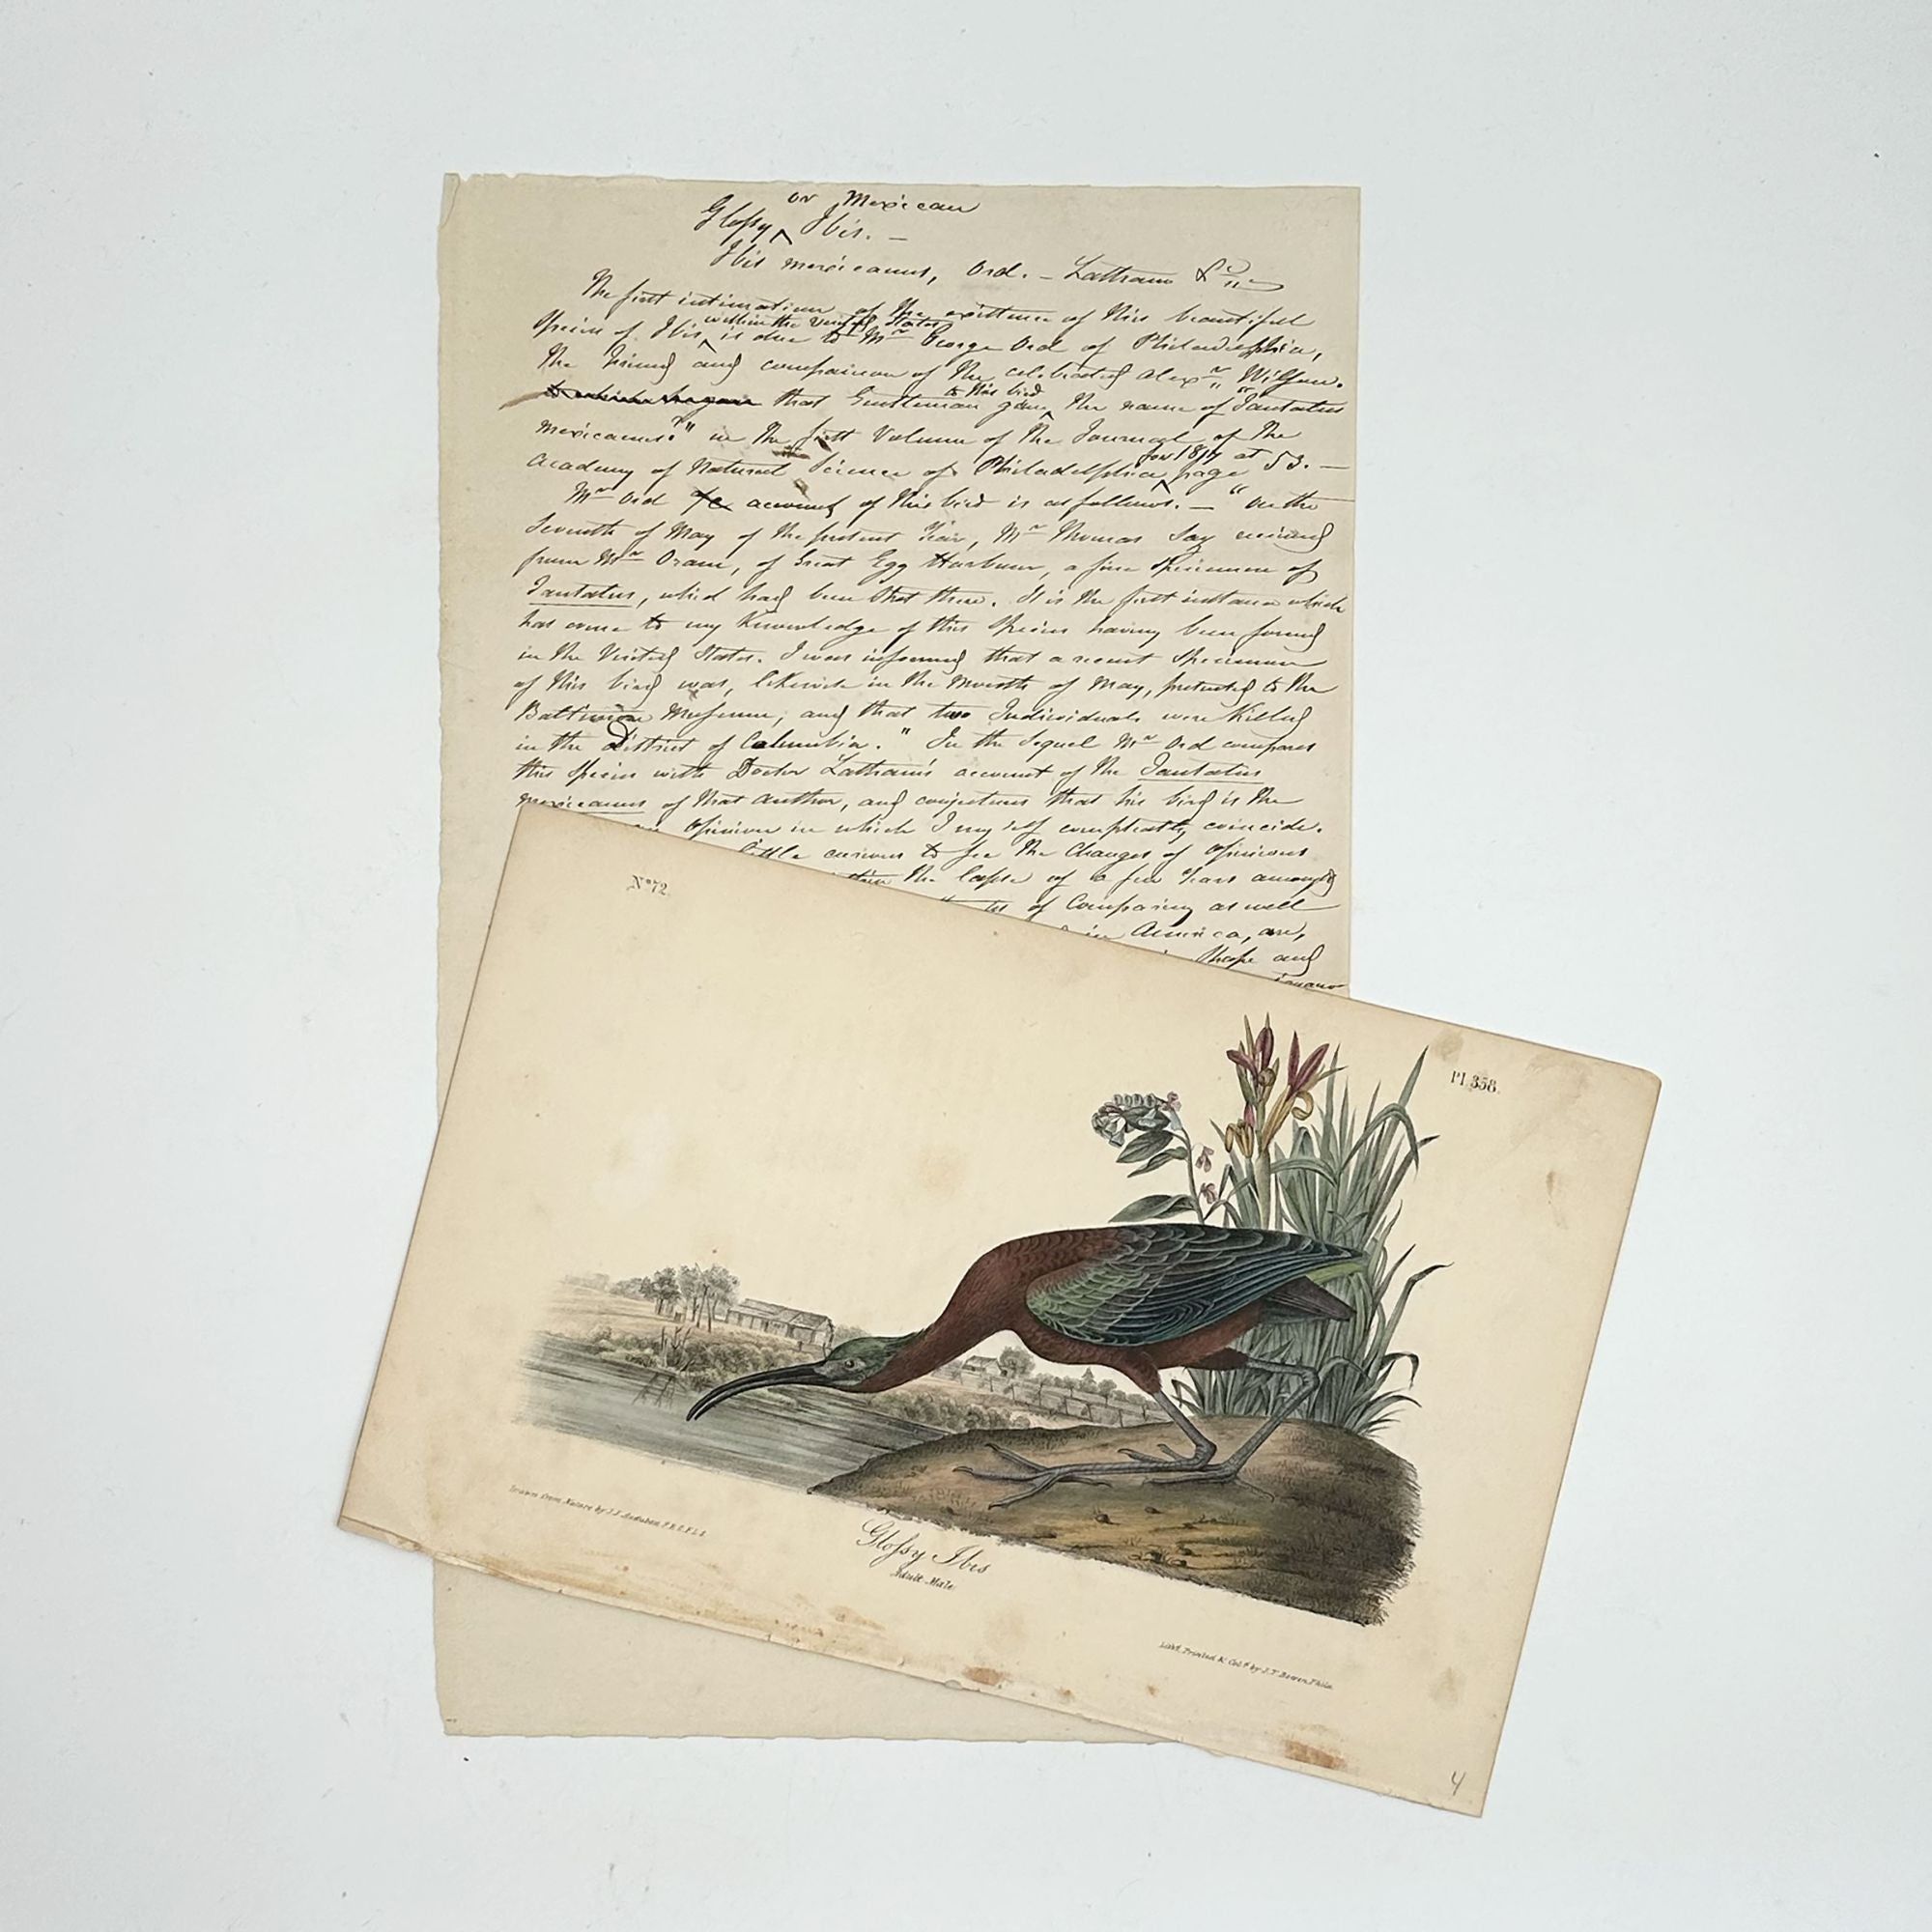 or Mexican
Glossy ^ Ibis. —
Ibis mexicanus, Ord. — Latham &c
The first intimation of the existence of this beautiful
within the United States
Species of Ibis ^ is due to Mr George Ord of Philadelphia,
the friend and companion of the celebrated Alexr Wilson.
to this bird
that Gentleman gave ^ the name of "Tantalus
mexicanus?" in the first Volume of the Journal of the
for 1817 at
Academy of Natural Science of Philadelphia ^ page 53. —
Mr Ord account of this bird is as follows. — "On the
Seventh of May of the present Year, Mr Thomas Say received
from Mr Oram, of Great Egg Harbour, a fine Specimen of
Tantalus, which had been Shot there. It is the first instance which
has come to my Knowledge of this Species having been found
in the United States. I was informed that a recent Specimen
of this bird was, likewise in the month of May, presented to the
Baltimore Museum, and that two Individuals were Killed
in the District of Columbia." In the Sequel Mr Ord compares
this Species with Doctor Latham's account of the Tantalus
mexicanus of that author, and conjectures that his bird is the
Opinion in which I my self completely coincide.
little curious to see the Changes of Opinions
the lapse of a few Years among
of Comparing as well
in America, are,
Shape and
No 72.
Pl. 358.
Drawn from Nature by J.J. Audubon, F.R.S.F.L.S.
Glossy Ibis
Adult Male
Lith. Printed & Cold by J.T. Bowen, Phila.
4